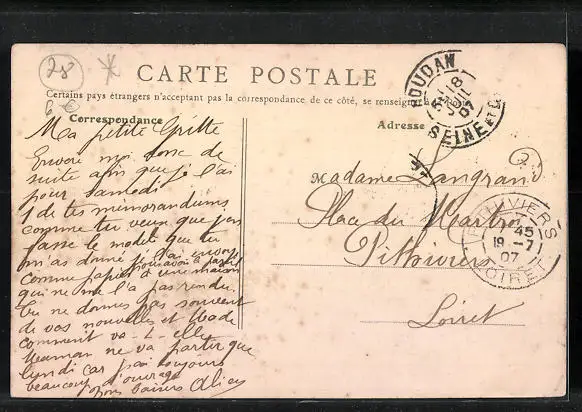 28
CARTE POSTALE
Certains pays étrangers n'acceptant pas la correspondance de ce côté, se renseigner à la
Correspondance
Adresse
Ma petite Gritte
Envoie moi donc de
suite afin que je l'ai
pour samedi
1 de tes mémorandums
comme tu veux que je
fasse le modèle que tu
m'as donné je l'ai envoyé
comme papier à une maison
qui ne me l'a pas rendu.
Tu ne donnes pas souvent
de vos nouvelles et
comment va-t-elle
Maman ne va partir que
lundi car j'ai toujours
beaucoup d'ouvrage
bons baisers
Madame Langrand
Place du Martroi
Pithiviers
Loiret
HOUDAN
18
JUIL
07
SEINE ET O
PITHIVIERS
45
19-7
07
LOIRET